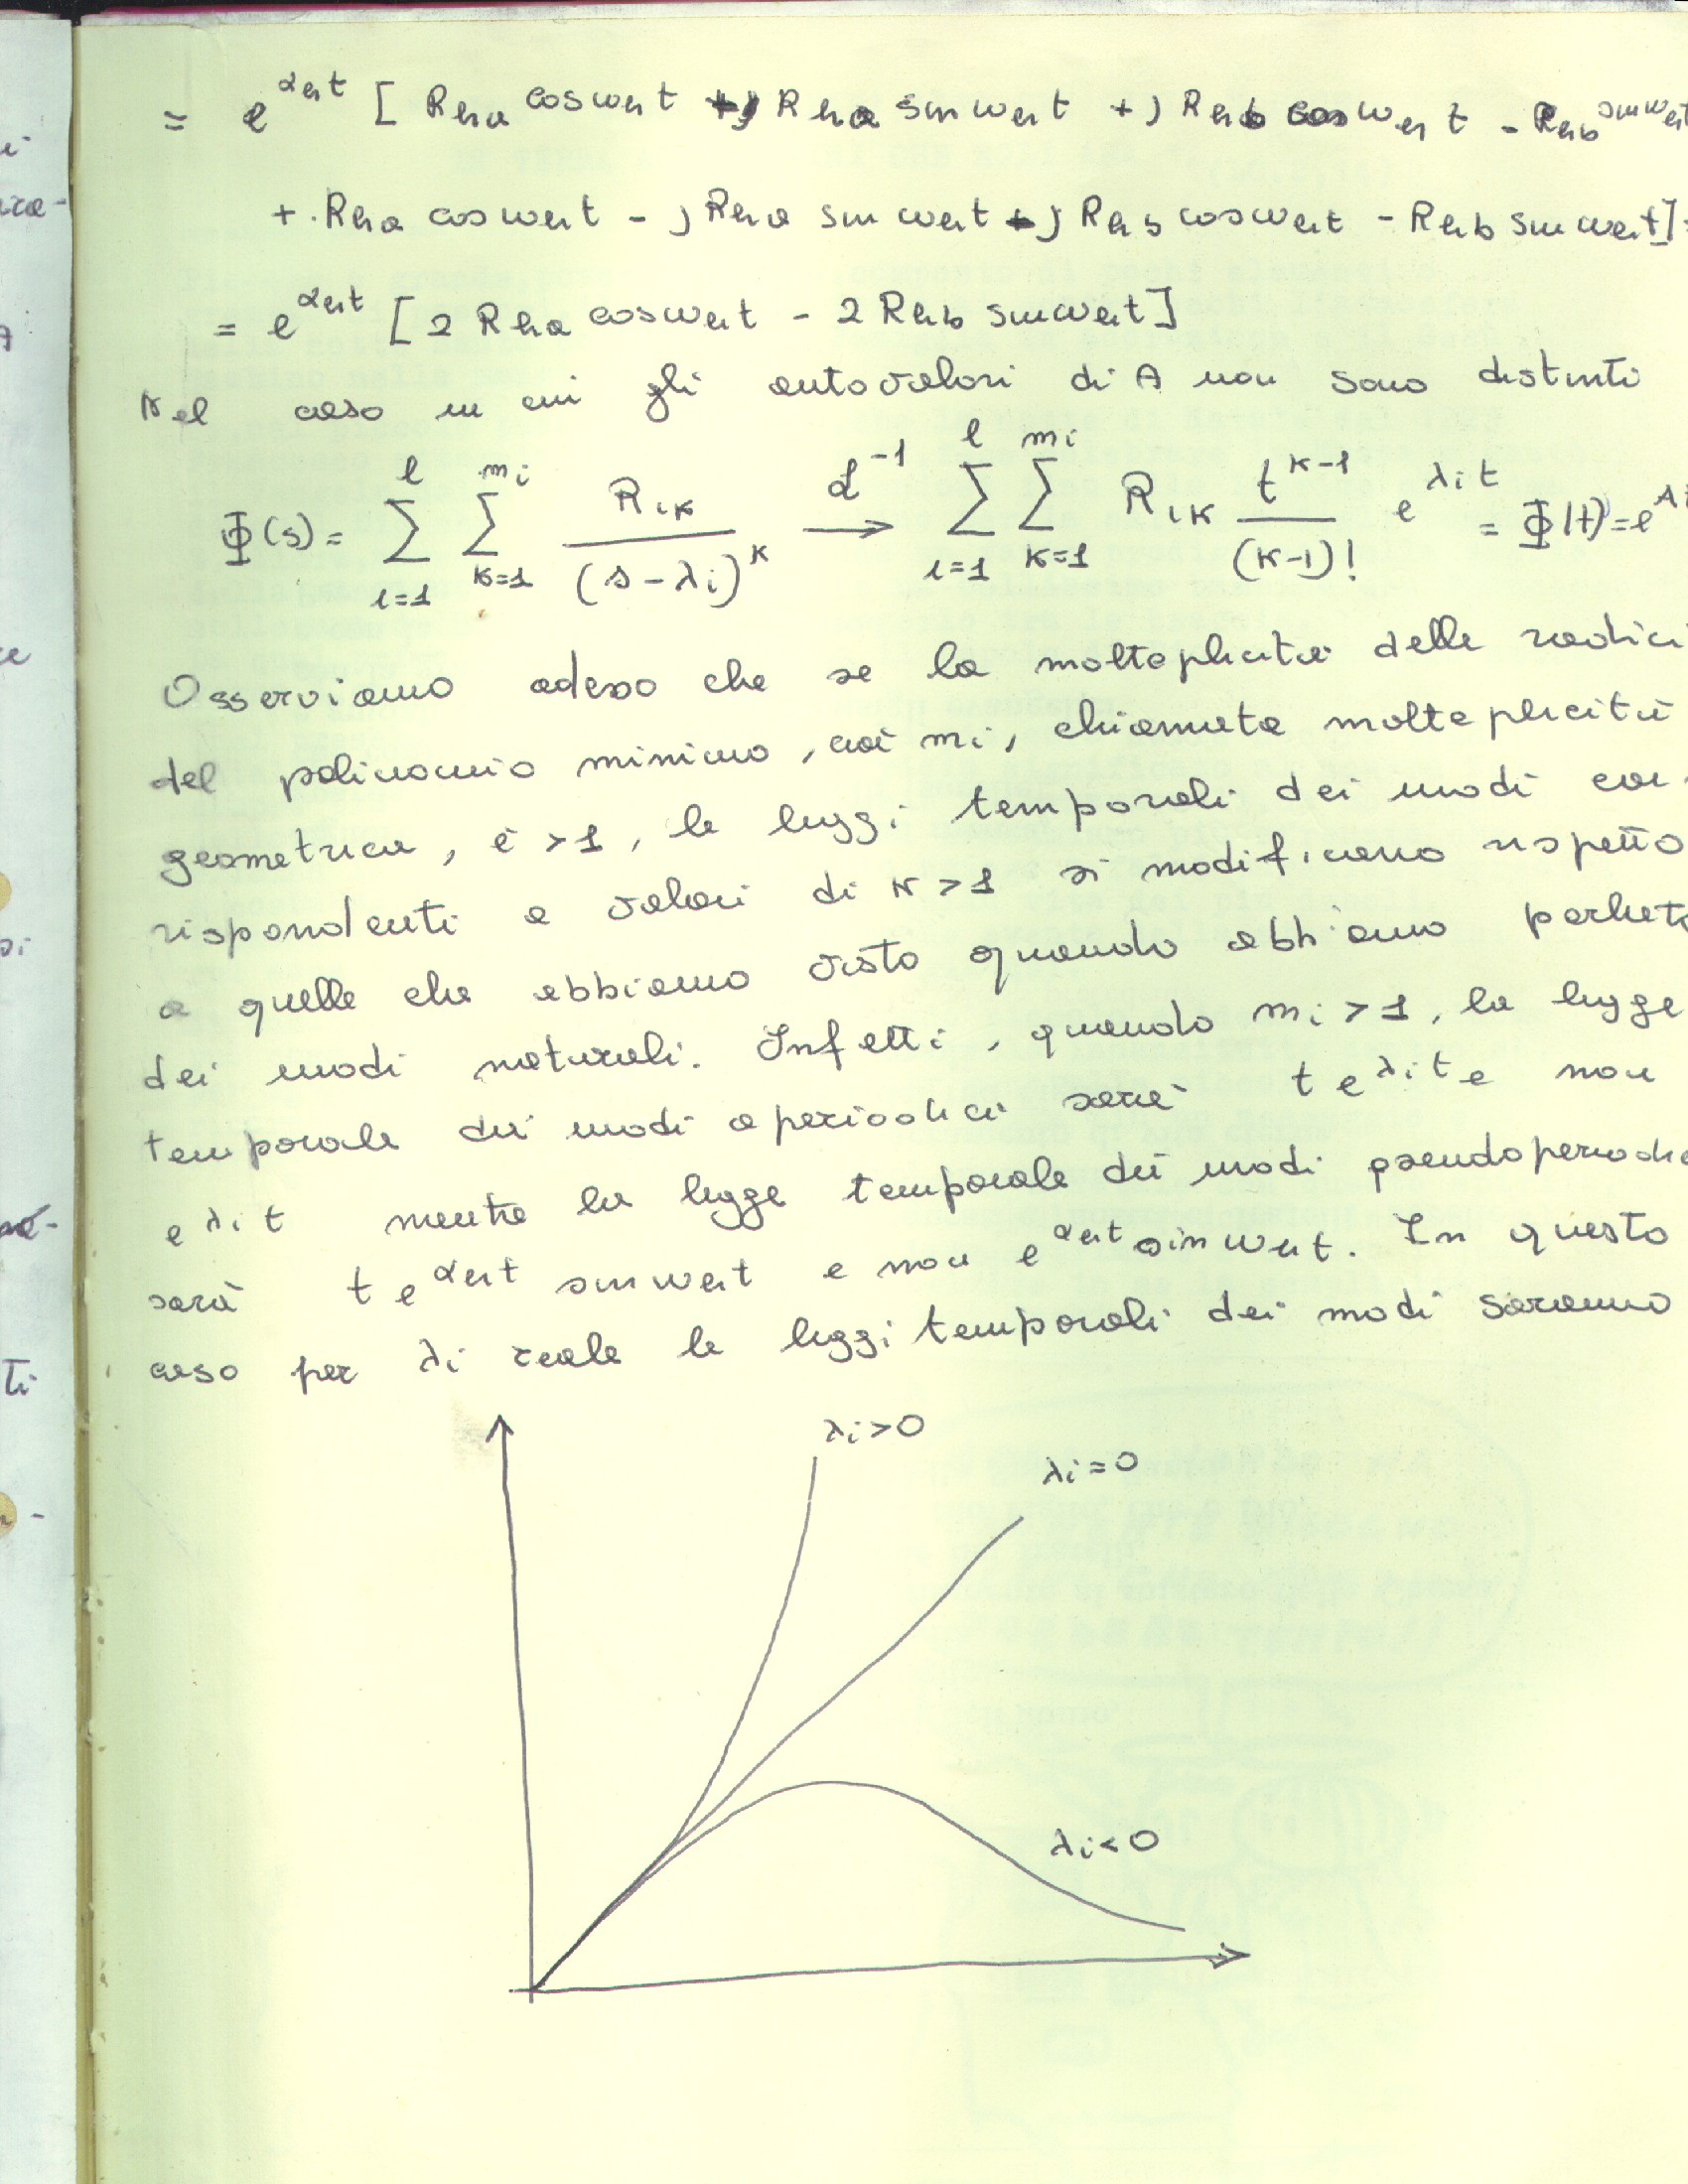 = e^{αht} [ Rha cosωht + j Rha sinωht + j Rhb cosωht - Rhb sinωht
+ Rha cosωht - j Rha sinωht - j Rhb cosωht - Rhb sinωht] =
= e^{αht} [2 Rha cosωht - 2 Rhb sinωht]
Nel caso in cui gli autovalori di A non sono distinti
Φ(s) = Σ_{i=1}^{l} Σ_{k=1}^{mi} Rik / (s-λi)^k →^{L^{-1}} Σ_{i=1}^{l} Σ_{k=1}^{mi} Rik t^{k-1}/(k-1)! e^{λit} = Φ(t) = e^{At}
Osserviamo adesso che se la molteplicità delle radici
del polinomio minimo, cioè mi, chiamata molteplicità
geometrica, è >1, le leggi temporali dei modi cor-
rispondenti a valori di k>1 si modificano rispetto
a quelle che abbiamo visto quando abbiamo parlato
dei modi naturali. Infatti, quando mi>1, la legge
temporale dei modi aperiodici sarà t e^{λit} e non
e^{λit} mentre la legge temporale dei modi pseudoperiodici
sarà t e^{αht} sinωht e non e^{αht} sinωht. In questo
caso per λi reale le leggi temporali dei modi saranno
λi>0
λi=0
λi<0